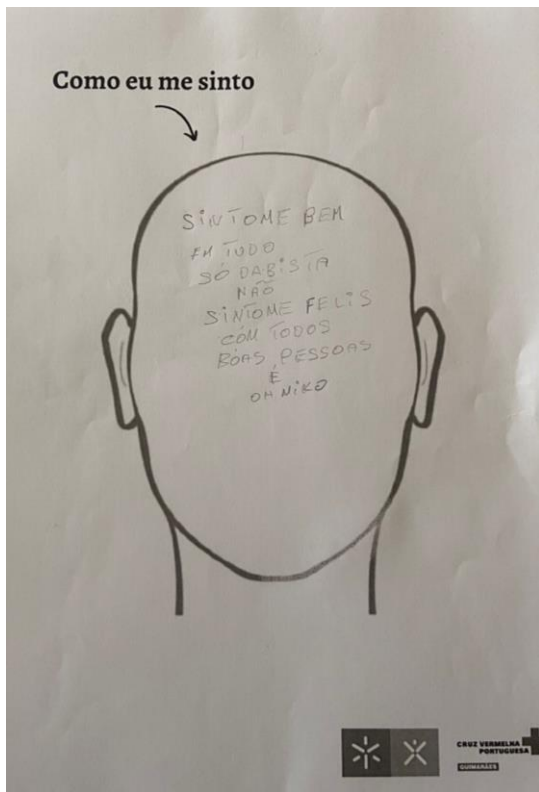 Como eu me sinto
SINTOME BEM
EM TUDO
SÓ DABISTA
NÃO
SINTOME FELIS
COM TODOS
BÓAS PESSOAS
É
OH NIKO
CRUZ VERMELHA
PORTUGUESA
GUIMARÃES